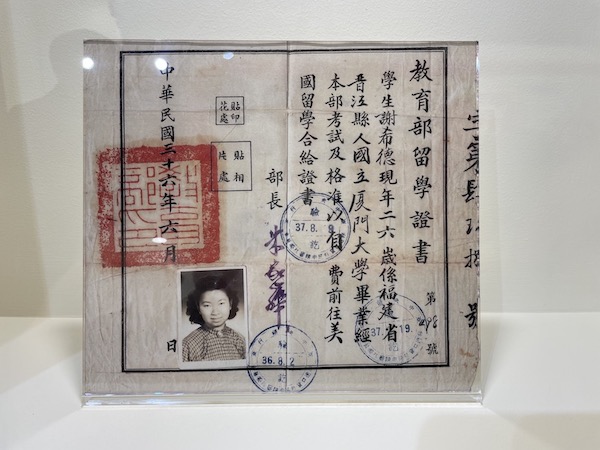 字第肆拾號
教育部留學證書
第 號
學生謝希德現年二六歲係福建省
晋江縣人國立厦門大學畢業經
本部考試及格准以自費前往美
國留學合給證書
部長 朱家驊
貼印花處
貼相片處
中華民國三十六年六月 日
驗 37.8.9 訖
37. 19 訖
36.8.2 訖